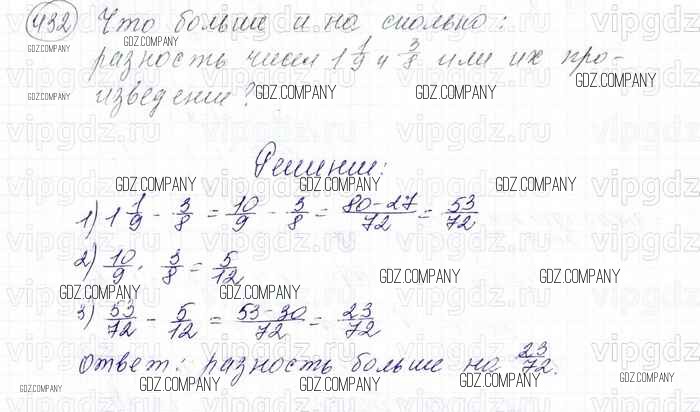 432 Что больше и на сколько:
разность чисел 1 1/9 и 3/8 или их про-
изведение?
Решение:
1) 1 1/9 - 3/8 = 10/9 - 3/8 = 80-27/72 = 53/72
2) 10/9 · 3/8 = 5/12
3) 53/72 - 5/12 = 53-30/72 = 23/72
Ответ: разность больше на 23/72.
GDZ.COMPANY
vipgdz.ru